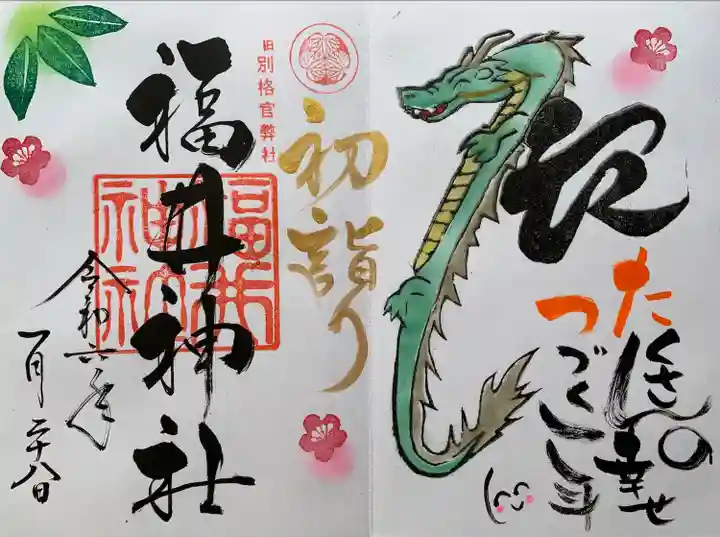 たくさんの幸せ
つづく一年
初詣り
旧別格官弊社
福井神社
令和六年
一月二十八日